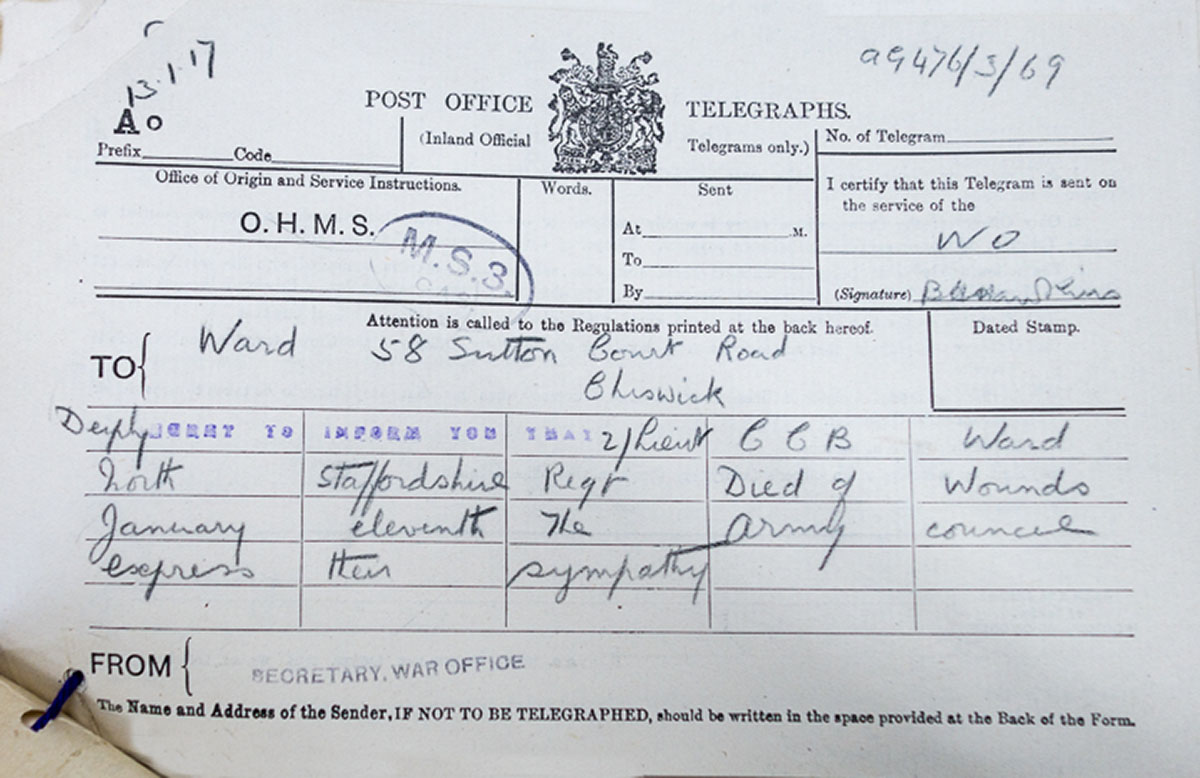 13.1.17
a9476/3/69
A o
POST OFFICE TELEGRAPHS.
(Inland Official Telegrams only.)
No. of Telegram
Prefix Code
Office of Origin and Service Instructions.
Words.
Sent
I certify that this Telegram is sent on
the service of the
O.H.M.S.
M.S.3.
At M.
W O
To
By
(Signature)
Attention is called to the Regulations printed at the back hereof.
Dated Stamp.
TO Ward 58 Sutton Court Road
Chiswick
Deeply REGRET TO INFORM YOU THAT 2/Lieut C C B Ward
North Staffordshire Regt Died of Wounds
January eleventh The Army council
express their sympathy
FROM SECRETARY, WAR OFFICE
The Name and Address of the Sender, IF NOT TO BE TELEGRAPHED, should be written in the space provided at the Back of the Form.